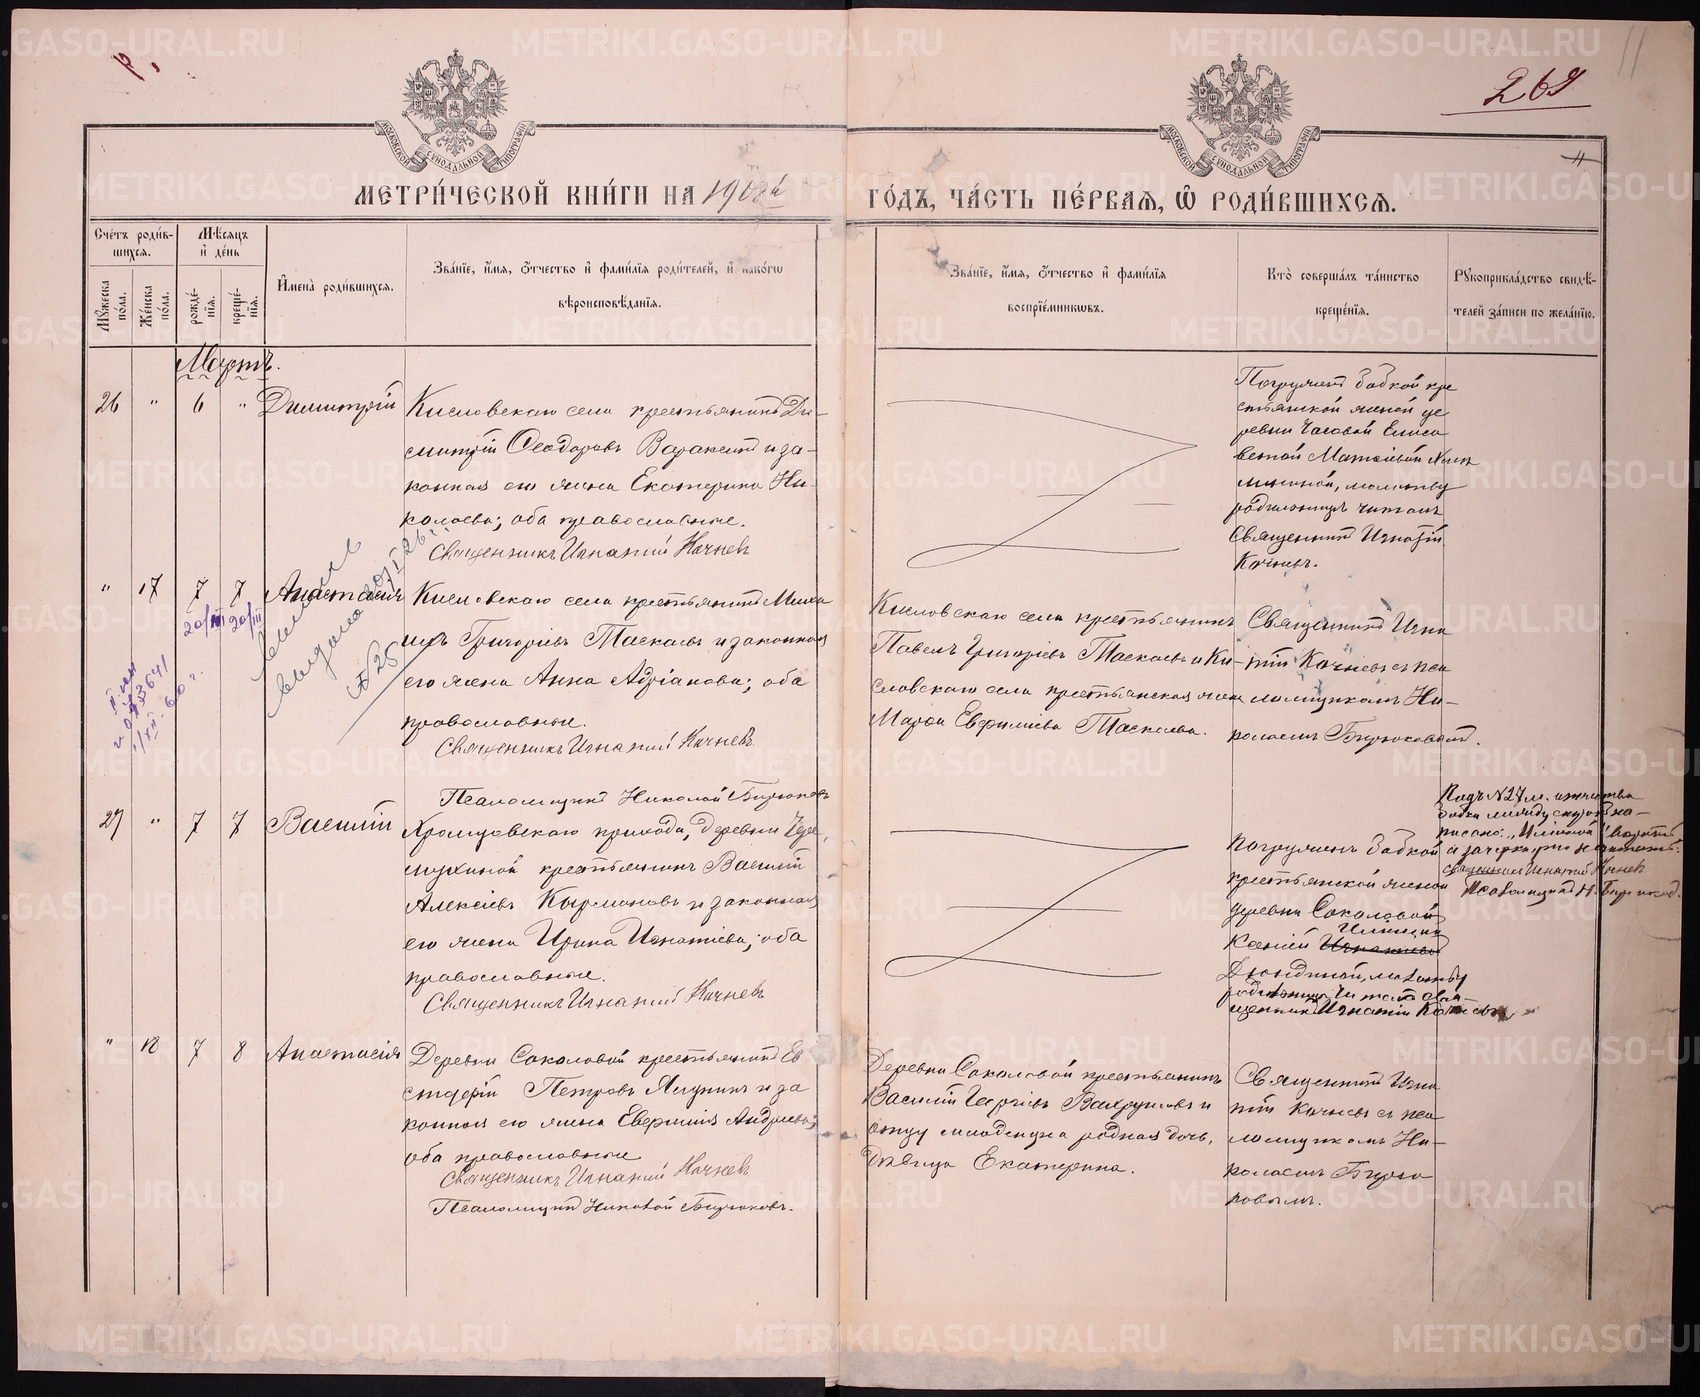 269
11
МЕТРИ́ЧЕСКОЙ КНИ́ГИ НА 1908й
ГО́ДЪ, ЧА́СТЬ ПЕ́РВАѦ, Ѽ РОДИ́ВШИХСѦ.
Сче́тъ роди́в-
шихсѧ.
Мꙋ́жеска по́ла.
Же́нска по́ла.
Мѣ́сѧцъ и҆ де́нь
рожде́-нїѧ.
креще́-нїѧ.
И҆мена̀ роди́вшихсѧ.
Зва́нїе, и҆́мѧ, ѻ҆́тчество и҆ фами́лїѧ роди́телей, и҆ како́гѡ
вѣроисповѣ́данїѧ.
Зва́нїе, и҆́мѧ, ѻ҆́тчество и҆ фами́лїѧ
воспрїе́мникѡвъ.
Кто̀ соверша́лъ та́инство
креще́нїѧ.
Рꙋкоприкла́дство свидѣ́-
телей за́писи по жела́нїю.
Мартъ.
26 " 6 " Димитрій
Кисловскаго села крестьянинъ Ди-
митрій Ѳеодоровъ Варакинъ и за-
конная его жена Екатерина Ни-
колаева; оба православные.
Священникъ Игнатій Кочневъ
Погруженъ бабкой кре
стьянской женой де
ревни Часовой Елиса
ветой Матвіевой
молитву
родильницѣ читалъ
Священникъ Игнатій
Кочневъ.
" 17 7 7 Анастасія
20/III 20/III
Кисловскаго села крестьянинъ Миха
илъ Григоріевъ Таскаевъ и законная
его жена Анна Адріанова; оба
православные.
Священникъ Игнатій Кочневъ
Псаломщикъ Николай Бирюковъ
выдана
№ 25
Кисловскаго села крестьянинъ
Павелъ Григоріевъ Таскаевъ и Ки-
словскаго села крестьянская жена
Марѳа Евфиміева Таскаева.
Священникъ Игна
тій Кочневъ съ пса
ломщикомъ Ни-
колаемъ Бирюковымъ.
27 " 7 7 Василій
Хромцовскаго прихода, деревни
крестьянинъ Василій
Алексіевъ Кырмановъ и законная
его жена Ирина Игнатіева; оба
православные.
Священникъ Игнатій Кочневъ
Погруженъ бабкой
крестьянской женой
деревни Соколовой
Ксеніей Игнатіевой
молитву
родильницѣ читалъ свя-
щенникъ Игнатій Кочневъ
Подъ №27 м.
бабки между строкъ на-
писано:
а зачеркнуто не читать.
Священникъ Игнатій Кочневъ
Псаломщикъ Н. Бирюков.
" 18 7 8 Анастасія
Деревни Соколовой крестьянинъ Ев
стафій Петровъ Ямунинъ и за
конная его жена Евфимія Андреева;
оба православные
Священникъ Игнатій Кочневъ
Псаломщикъ Николай Бирюковъ.
Деревни Соколовой крестьянинъ
Василій Георгіевъ Вахрушевъ и
отцу младенца родная дочь,
дѣвица Екатерина.
Священникъ Игна
тій Кочневъ съ пса
ломщикомъ Ни-
колаемъ Бирю
ковымъ.
METRIKI.GASO-URAL.RU